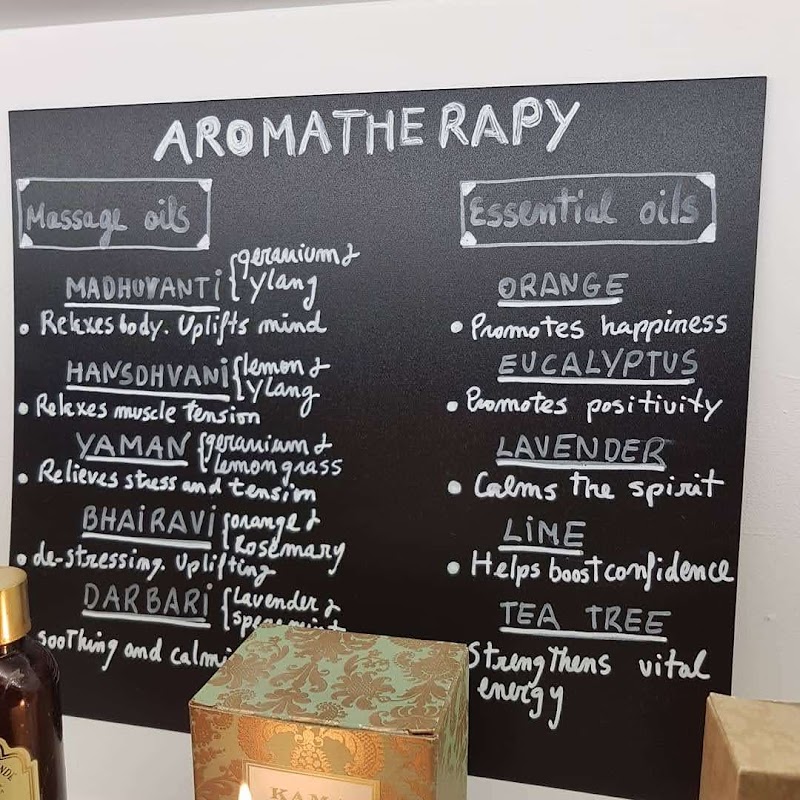 AROMATHERAPY
Massage oils
MADHUVANTI { geranium &
ylang
• Relaxes body. Uplifts mind
HANSDHVANI { lemon &
ylang
• Relaxes muscle tension
YAMAN { geranium &
lemon grass
• Relieves stress and tension
BHAIRAVI { orange &
Rosemary
• de-stressing. Uplifting
DARBARI { Lavender &
soothing and
Essential oils
ORANGE
• Promotes happiness
EUCALYPTUS
• Promotes positivity
LAVENDER
• Calms the spirit
LIME
• Helps boost confidence
TEA TREE
Strengthens vital
energy
KAMA